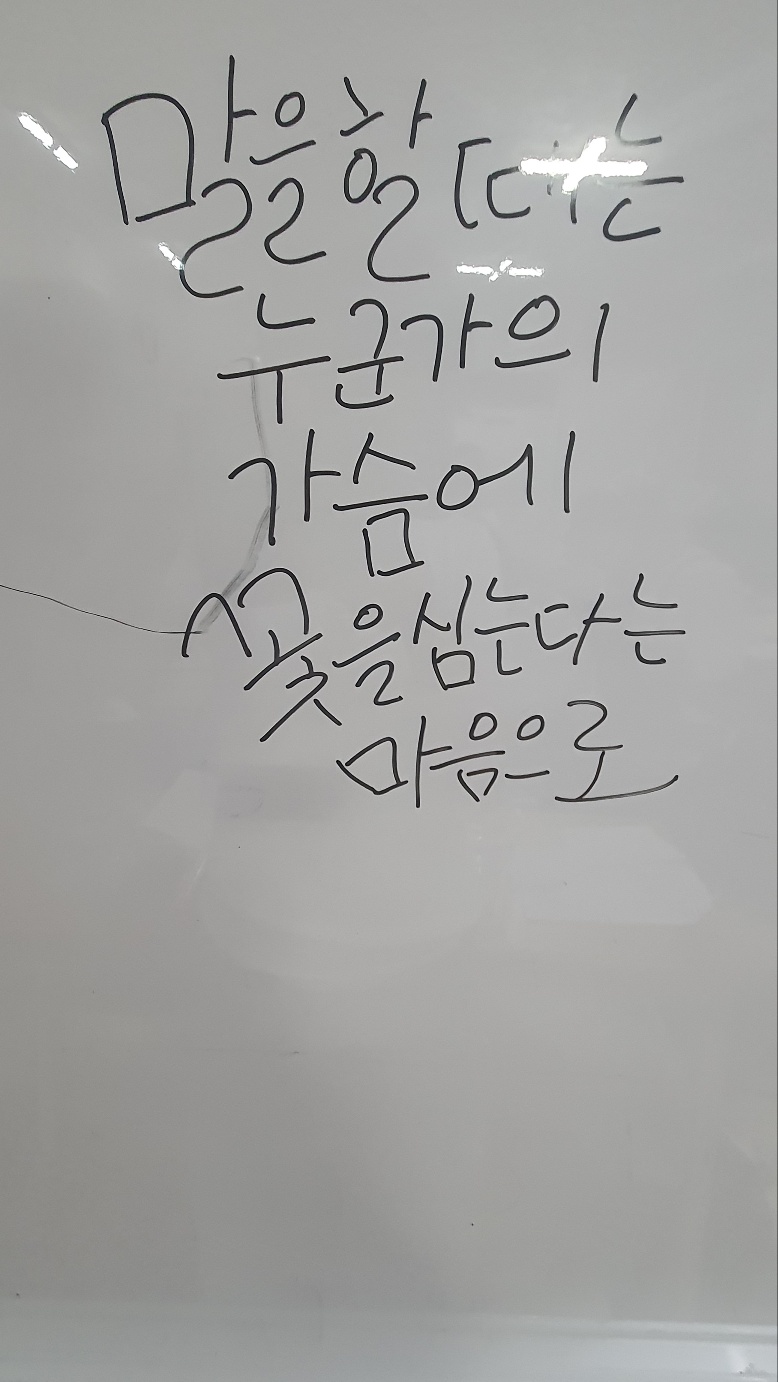 말을할때는
누군가의
가슴에
꽃을심는다는
마음으로